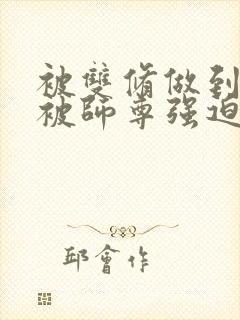 被雙脩做到
被師尊强迫
邱會作